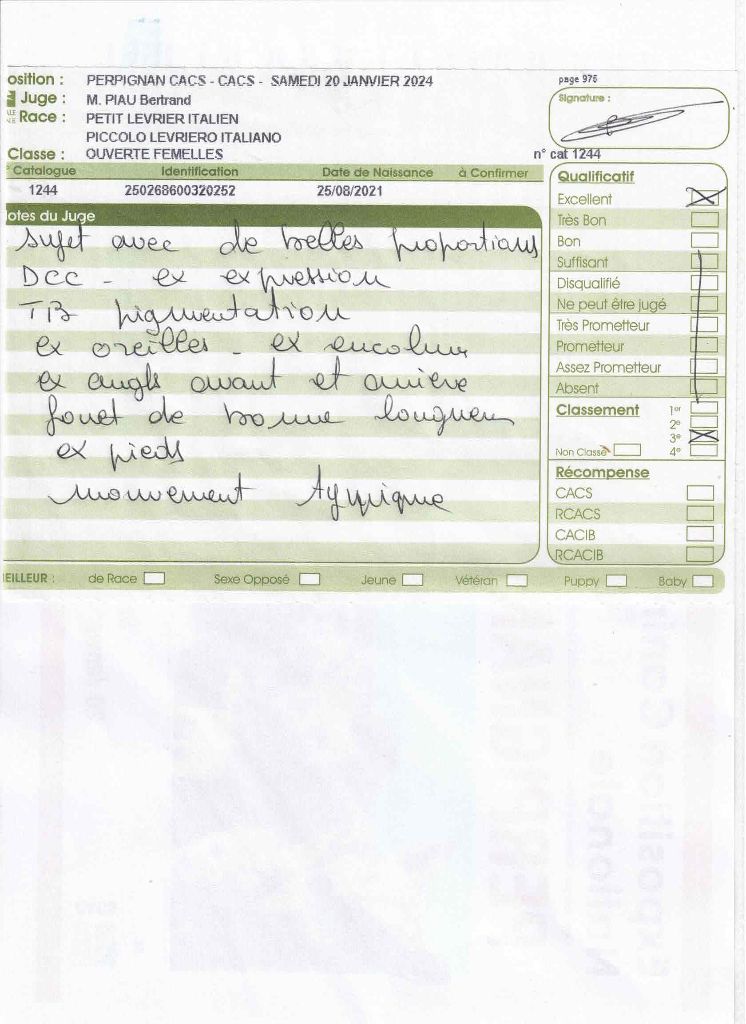 osition : PERPIGNAN CACS - CACS - SAMEDI 20 JANVIER 2024
page 976
Juge : M. PIAU Bertrand
Signature :
Race : PETIT LEVRIER ITALIEN
PICCOLO LEVRIERO ITALIANO
Classe : OUVERTE FEMELLES
n° cat 1244
° Catalogue Identification Date de Naissance à Confirmer
1244 250268600320252 25/08/2021
otes du Juge
sujet avec de belles proportions
DCC - ex expression
TB pigmentation
ex oreilles - ex encolure
ex angls avant et arrière
fouet de bonne longueur
ex pieds
mouvement typique
Qualificatif
Excellent
Très Bon
Bon
Suffisant
Disqualifié
Ne peut être jugé
Très Prometteur
Prometteur
Assez Prometteur
Absent
Classement 1er
2e
3e
Non Classé 4e
Récompense
CACS
RCACS
CACIB
RCACIB
EILLEUR : de Race Sexe Opposé Jeune Vétéran Puppy Baby